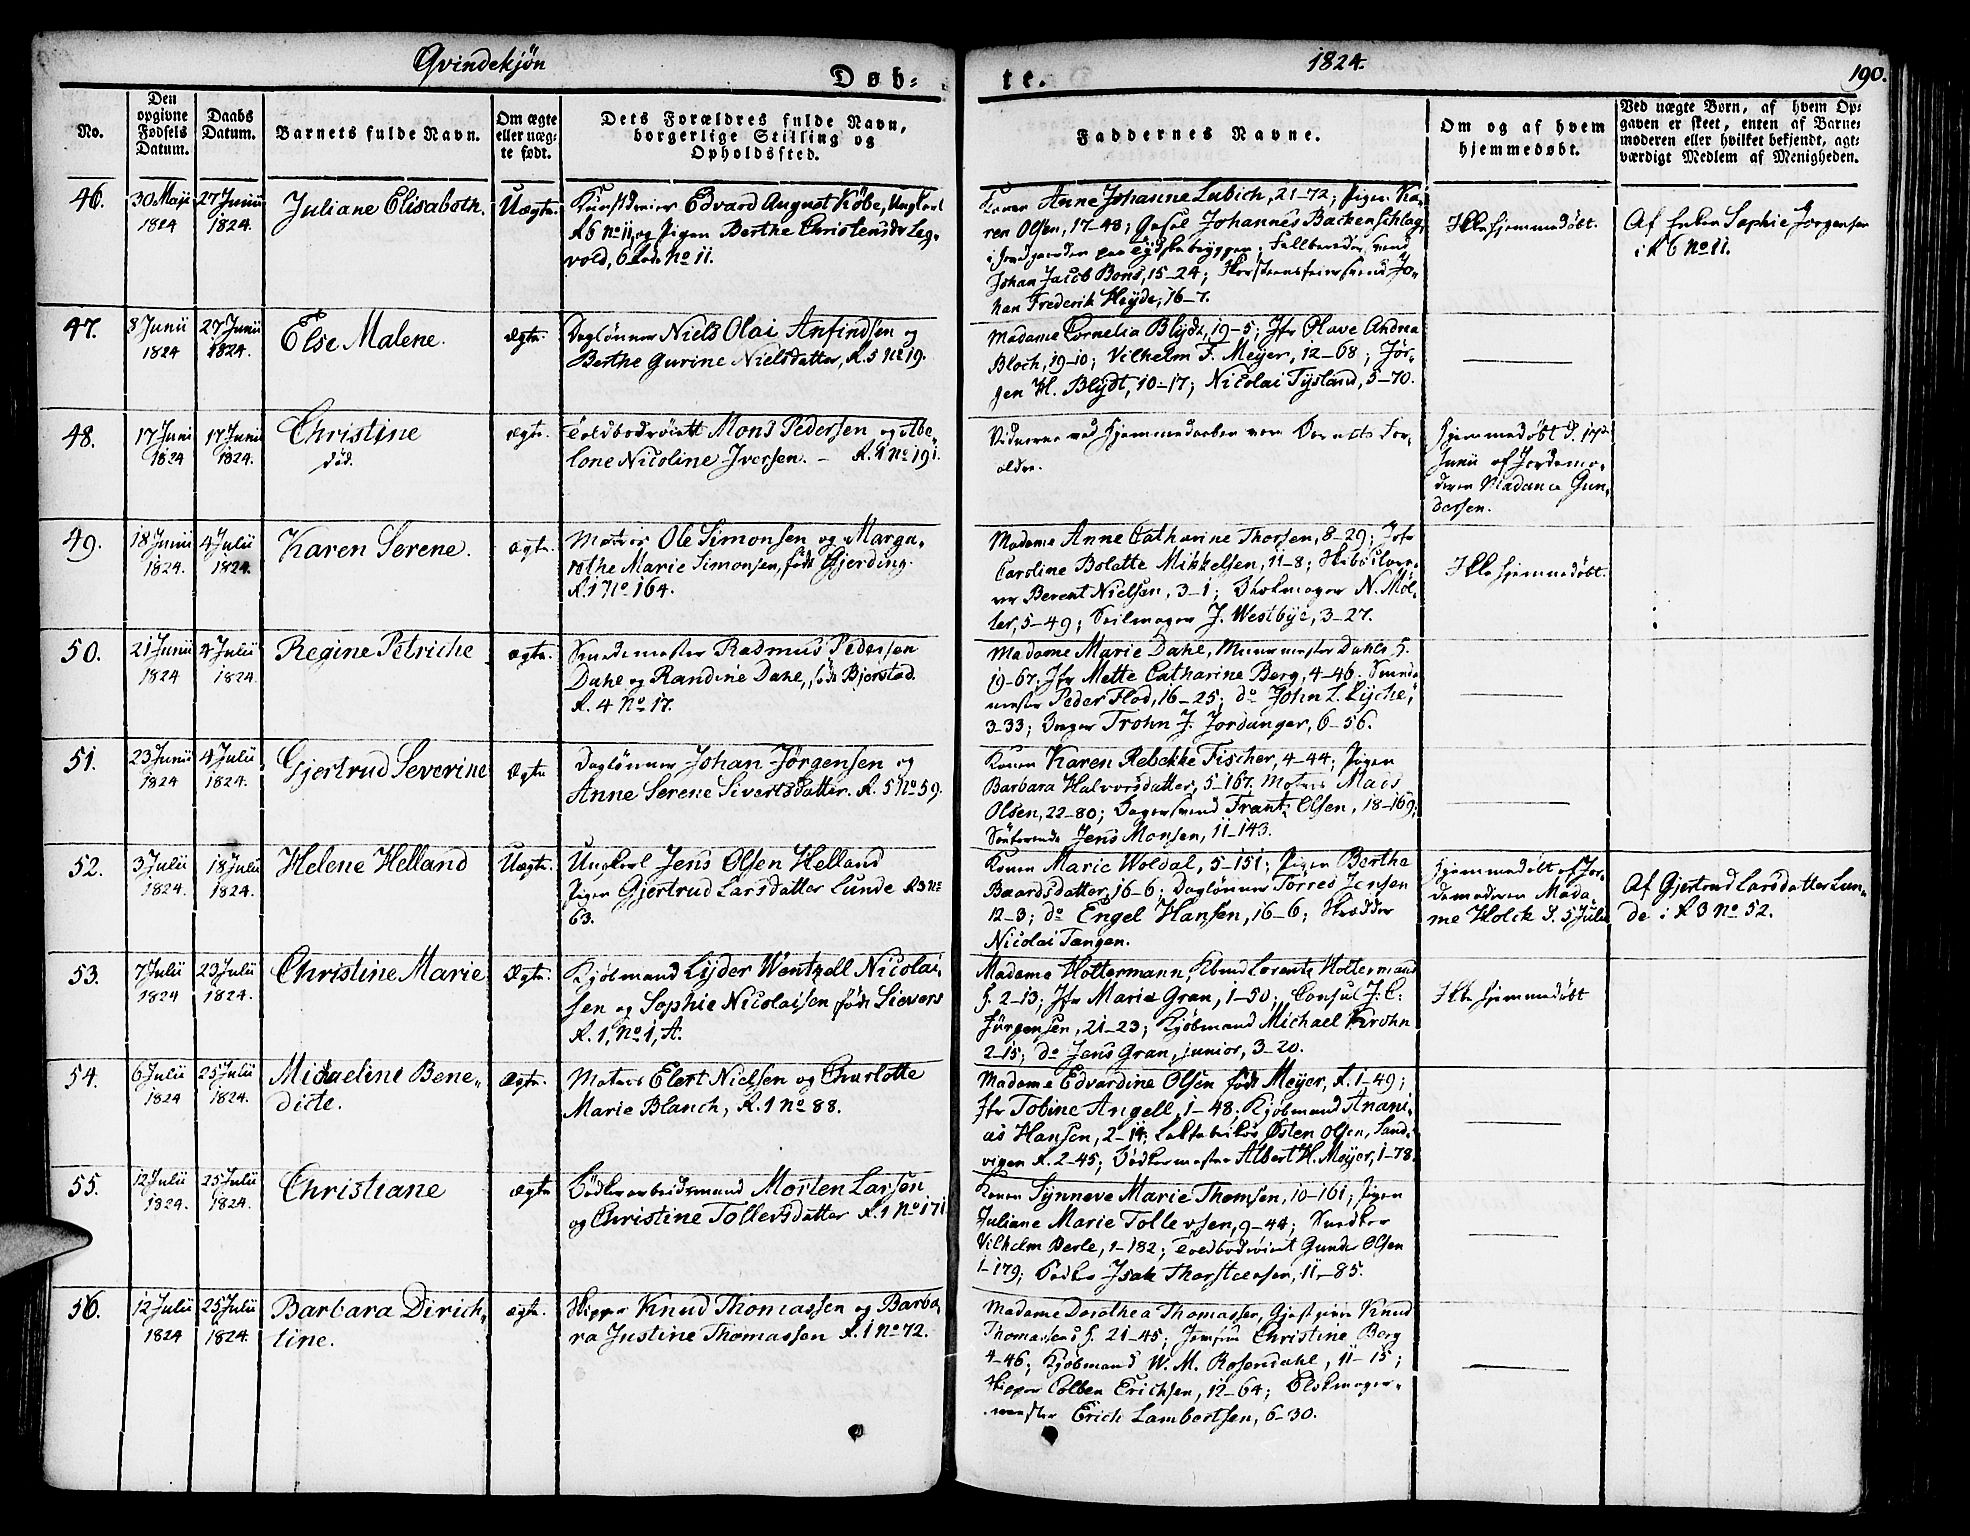 Qvindekjön
Döb-
te.
1824.
190.
No.
Den
opgivne
Fødsels
Datum.
Daabs
Datum.
Barnets fulde Navn.
Om ægte
eller uæg-
te født.
Dets Forældres fulde Navn,
borgerlige Stilling og
Opholdssted.
Faddernes Navne.
Om og af hvem
hjemmedøbt.
Ved uægte Børn, af hvem Op-
gaven er skeet, enten af Barne-
moderen eller hvilket bekjendt, agt-
værdigt Medlem af Menigheden.
46.
30 Maji
1824
27 Junii
1824.
Juliane Elisabeth.
Uægte.
Kunstdreier Edvard August Köbe, Ungkarl
R 6 No 11, og Pigen Berthe Christensdr Leg-
vold, 6 Rode No 11.
Konen Anne Johanne Lubich, 21-72; Pigen Ka-
ren Olsen, 17-48; Gesel Johannes Backenschlag,
Johan Jacob Bons, 15-24; Skorsteensfeiersvend Jo-
han Frederik Heyde, 16-7.
Ikke hjemmedøbt.
Af Enken Sophie Jörgensen
i R 6 No 11.
47.
8 Junii
1824
27 Junii
1824.
Else Malene.
Ægte.
Daglönner Niels Olai Anfindsen og
Berthe Gurine Nielsdatter, R. 5 No 19.
Madame Cornelia Blydt, 19-5; Jfr Olave Andrea
Bloch, 19-10; Vilhelm F. Meyer, 12-68; Jör-
gen H. Blydt, 10-17; Nicolai Tysland, 5-70.
48.
17 Juni
1824
17 Juni
1824.
Christine
död.
ægte.
Toldbodröiert Mons Pedersen og Abe-
lone Nicoline Iversen. - R. 1 No 191.
Vidnerne ved Hjemmedaaben var Barnets For-
ældre.
Hjemmedøbt d. 17de
Junii af Jordemo-
deren Madame Gun-
dersen.
49.
18 Junii
1824.
4 Julii
1824.
Karen Serene.
ægte.
Matros Ole Simonsen og Marga-
rethe Marie Simonsen, født Gjerding.
R. 1 No 164.
Madame Anne Catharine Thorsen, 8-29; Jfr
Caroline Bolette Mikkelsen, 11-8; Skibstöm-
rer Berent Nielsen, 3-1; Blokmager N. Möl-
ler, 5-49; Seilmager J. Westbye, 3-27.
Ikke hjemmedøbt.
50.
21 Junii
1824
4 Julii
1824.
Regine Petriche
ægte.
Smedemester Rasmus Pedersen
Dahe og Randine Dahe, född Bjerstad.
R. 4 No 17.
Madame Marie Dahl, Muurmester Dahls H.
19-67. Jfr Mette Catharine Berg, 4-46. Smede-
mester Peder Flod, 16-25; do John L. Lyche,
3-33; Trohn J. Jordanger, 6-56.
51.
23 Junii
1824
4 Julii
1824.
Gjertrud Severine
Ægte
Daglönner Johan Jörgensen og
Anne Serene Sivertsdatter. R. 5 No 59.
Konen Karen Rebekke Fischer, 4-44; Pigen
Barbara Halvorsdatter, 5-167. Matros Mads
Olsen, 22-80; Bagersvend Frantz Olsen, 18-169;
Jens Monsen, 11-143.
52.
3 Julii
1824.
18 Julii
1824.
Helene Helland
Uægte.
Ungkarl Jens Olsen Helland
Pigen Gjertrud Larsdatter Lunde R 3 No
63.
Konen Marie Woldal, 5-151; Pigen Berthe
Baardsdatter, 16-6; Daglönner Torres Jensen
12-3; do Engel Hansen, 16-6; Skrædder
Nicolai Tangen.
Hjemmedøbt af Jor-
demoderen Mada-
me Holck d. 5 Julii
Af Gjertrud Larsdatter Lun-
de i R 3 No 52.
53.
7 Julii
1824
23 Julii
1824.
Christine Marie
Ægte.
Kjöbmand Lyder Wentzell Nicolai-
sen og Sophie Nicolaisen født Sievers
R. 1, No 1, A.
Madame Holtermann, Kbmd Lorentz Holtermans
H. 2-13; Jfr Marie Gran, 1-50; Consul J. C.
Jürgensen, 21-23; Kjöbmand Michael Krohn
2-15; do Jens Gran, junior, 3-20.
Ikke hjemmedøbt
54.
6 Julii
1824
25 Julii
1824.
Micaeline Bene-
dicte.
Ægte.
Matros Elert Nielsen og Charlotte
Marie Blanch, R. 1 No 88.
Madame Edvardine Olsen født Meyer, R. 1-49;
Jfr Tobine Angell, 1-48. Kjöbmand Anani-
as Hansen, 2-14; Østen Olsen, Sand-
vigen R. 2-45; Bödkermester Albert H. Meyer, 1-78.
55.
12 Julii
1824.
25 Julii
1824.
Christiane
ægte
Bödkerarbeidsmand Morten Larsen
og Christine Tollevsdatter R. 1 No 171
Konen Synneve Marie Thomsen, 10-161; Pigen
Juliane Marie Tollevsen, 9-44; Snedker
Vilhelm Berle, 1-182; Toldbodröiert Gunder Olsen
1-179; Bödker Isak Thorsteensen, 11-85.
56.
12 Julii
1824
25 Julii
1824.
Barbara Dirich-
tine.
ægte.
Skipper Knud Thomassen og Barba-
ra Justine Thomassen R. 1 No 72.
Madame Dorothea Thomassen, Gjestgiver Knud
Thomassens H. 21-45; Jomfru Christine Berg
4-46; Kjöbmand W. M. Rosendahl, 11-15;
Skipper Colben Erichsen, 12-64; Blokmager-
mester Erich Lambertsen, 6-30.